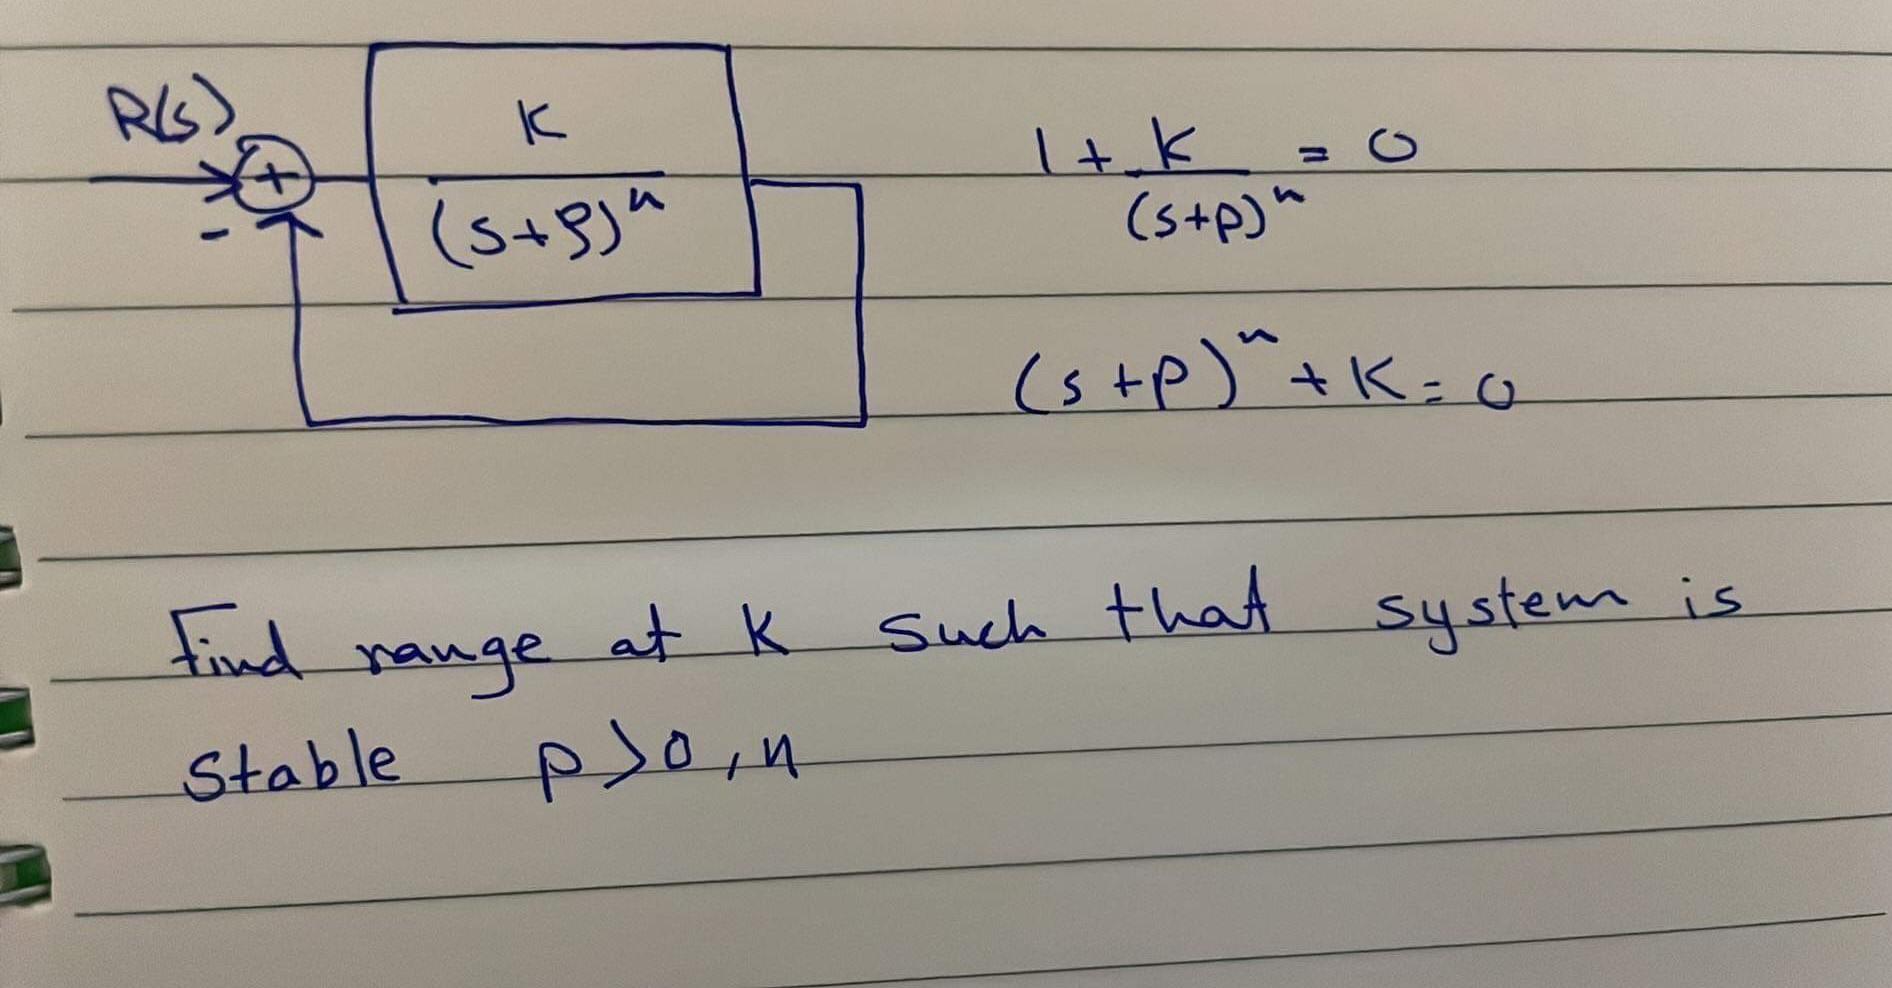 R(s)
+
-
K
(s+p)^n
1 + K/(s+p)^n = 0
(s+p)^n + K = 0
Find range at K such that system is
stable p>0, n